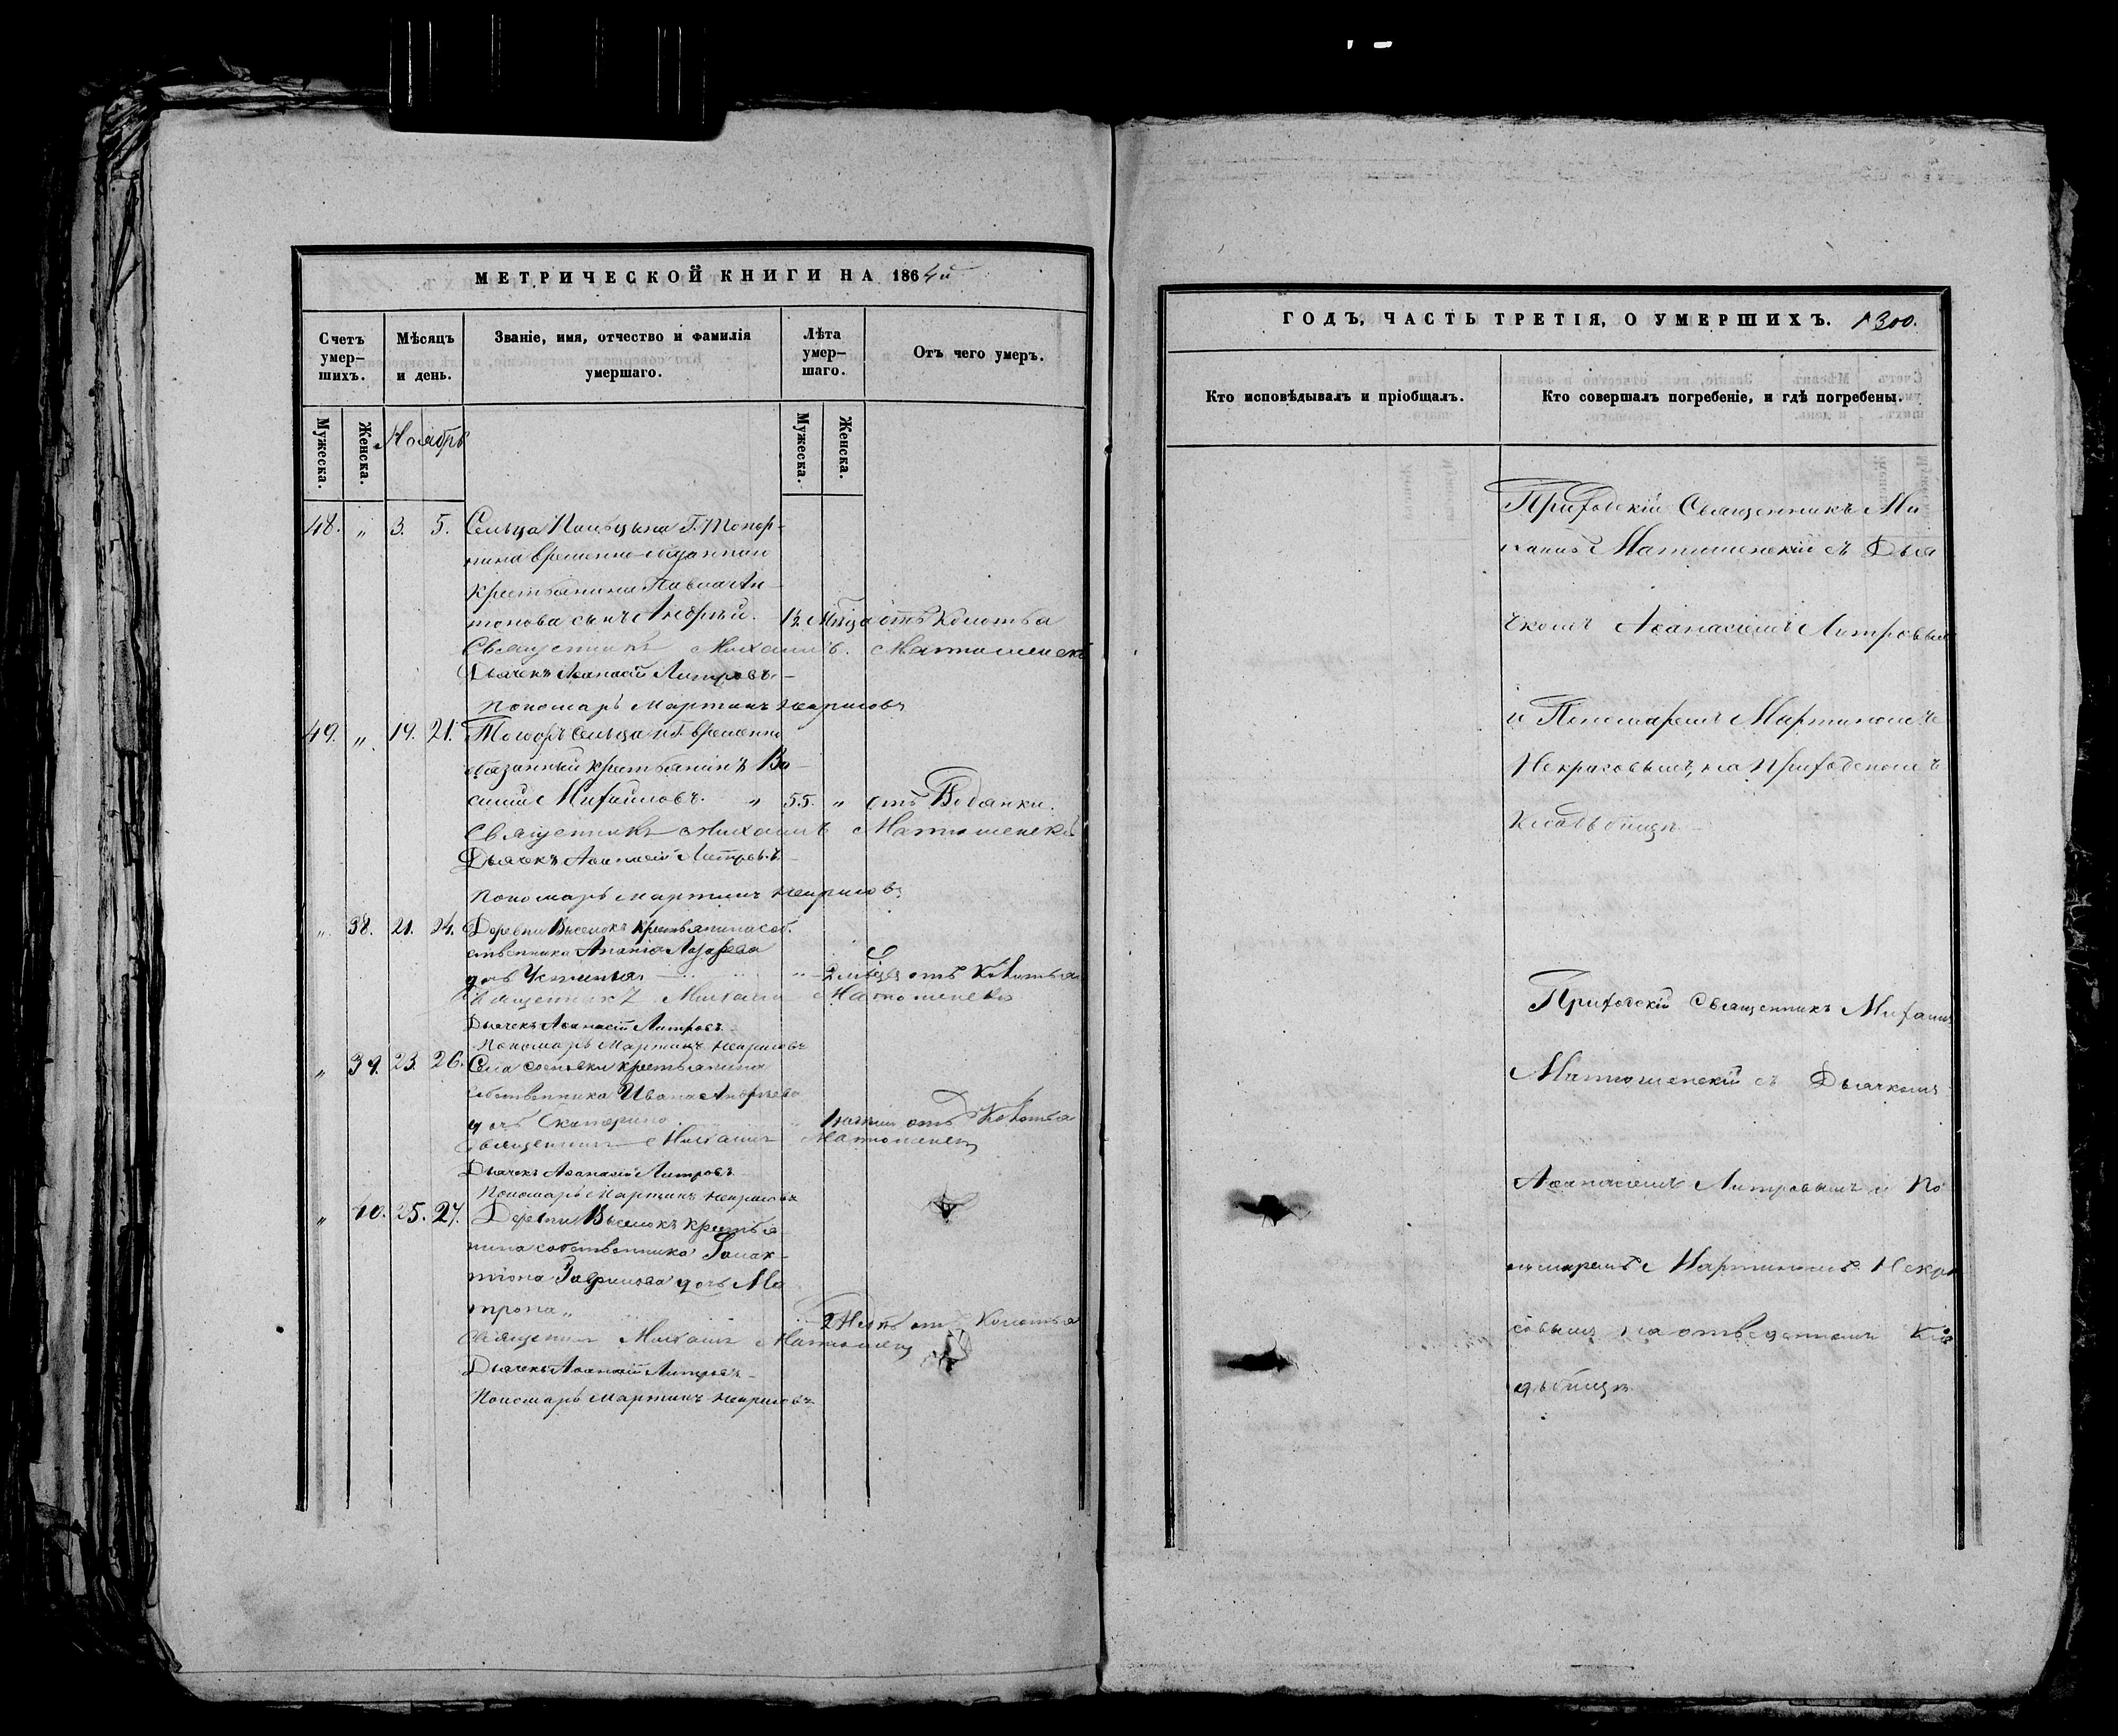 МЕТРИЧЕСКОЙ КНИГИ НА 1864й
Счетъ умер-шихъ.
Мѣсяцъ и день.
Званіе, имя, отчество и фамилія умершаго.
Лѣта умер-шаго.
Отъ чего умеръ.
Мужеска.
Женска.
Ноябрь
Мужеска.
Женска.
48. „ 3. 5. Сельца Г. Топор-
нина временно обязаннаго
крестьянина Павла Ан-
тонова сынъ Андрей. 1½ мѣсяца отъ Колотья
Священникъ Михаилъ Матюшенскій
Дьячекъ Аѳанасій Литровъ
Пономарь Мартинъ Некрасовъ
49. „ 19. 21. Того жъ сельца и Г. временно
обязанный крестьянинъ Ва-
силій Михайловъ. „ 55. „ отъ Водянки.
Священникъ Михаилъ Матюшенскій
Дьячекъ Аѳанасій Литровъ
Пономарь Мартинъ Некрасовъ
„ 38. 21. 24. Деревни Выселокъ крестьянина соб-
ственника Анания Лазарева
дочь Устинья „ 2 мѣсяц отъ Колотья
Священникъ Михаилъ Матюшенскій
Дьячекъ Аѳанасій Литровъ
Пономарь Мартинъ Некрасовъ
„ 39. 23. 26. Села Сосновки крестьянина
собственника Ивана Андреева
дочь Екатерина отъ Колотья
Священникъ Михаилъ Матюшенск
Дьячекъ Аѳанасій Литровъ
Пономарь Мартинъ Некрасовъ
„ 40. 25. 27. Деревни Выселокъ крестья-
нина собственника Галак-
тіона Гаврилова дочь Ма
трона „
2 отъ Колотья
Священникъ Михаилъ Матюшенск
Дьячекъ Аѳанасій Литровъ
Пономарь Мартинъ Некрасовъ
ГОДЪ, ЧАСТЬ ТРЕТІЯ, О УМЕРШИХЪ. 1300.
Кто исповѣдывалъ и пріобщалъ.
Кто совершалъ погребеніе, и гдѣ погребены.
Приходскій Священникъ Ми
хаилъ Матюшенскій съ Дья
чкомъ Аѳанасіемъ Литровымъ
и Пономаремъ Мартиномъ
Некрасовымъ, на Приходскомъ
Кладбищѣ
Приходскій Священникъ Михаилъ
Матюшенскій съ Дьячкомъ
Аѳанасіемъ Литровымъ и По
номаремъ Мартиномъ Некра
совымъ на отведенномъ Кла
дбищѣ